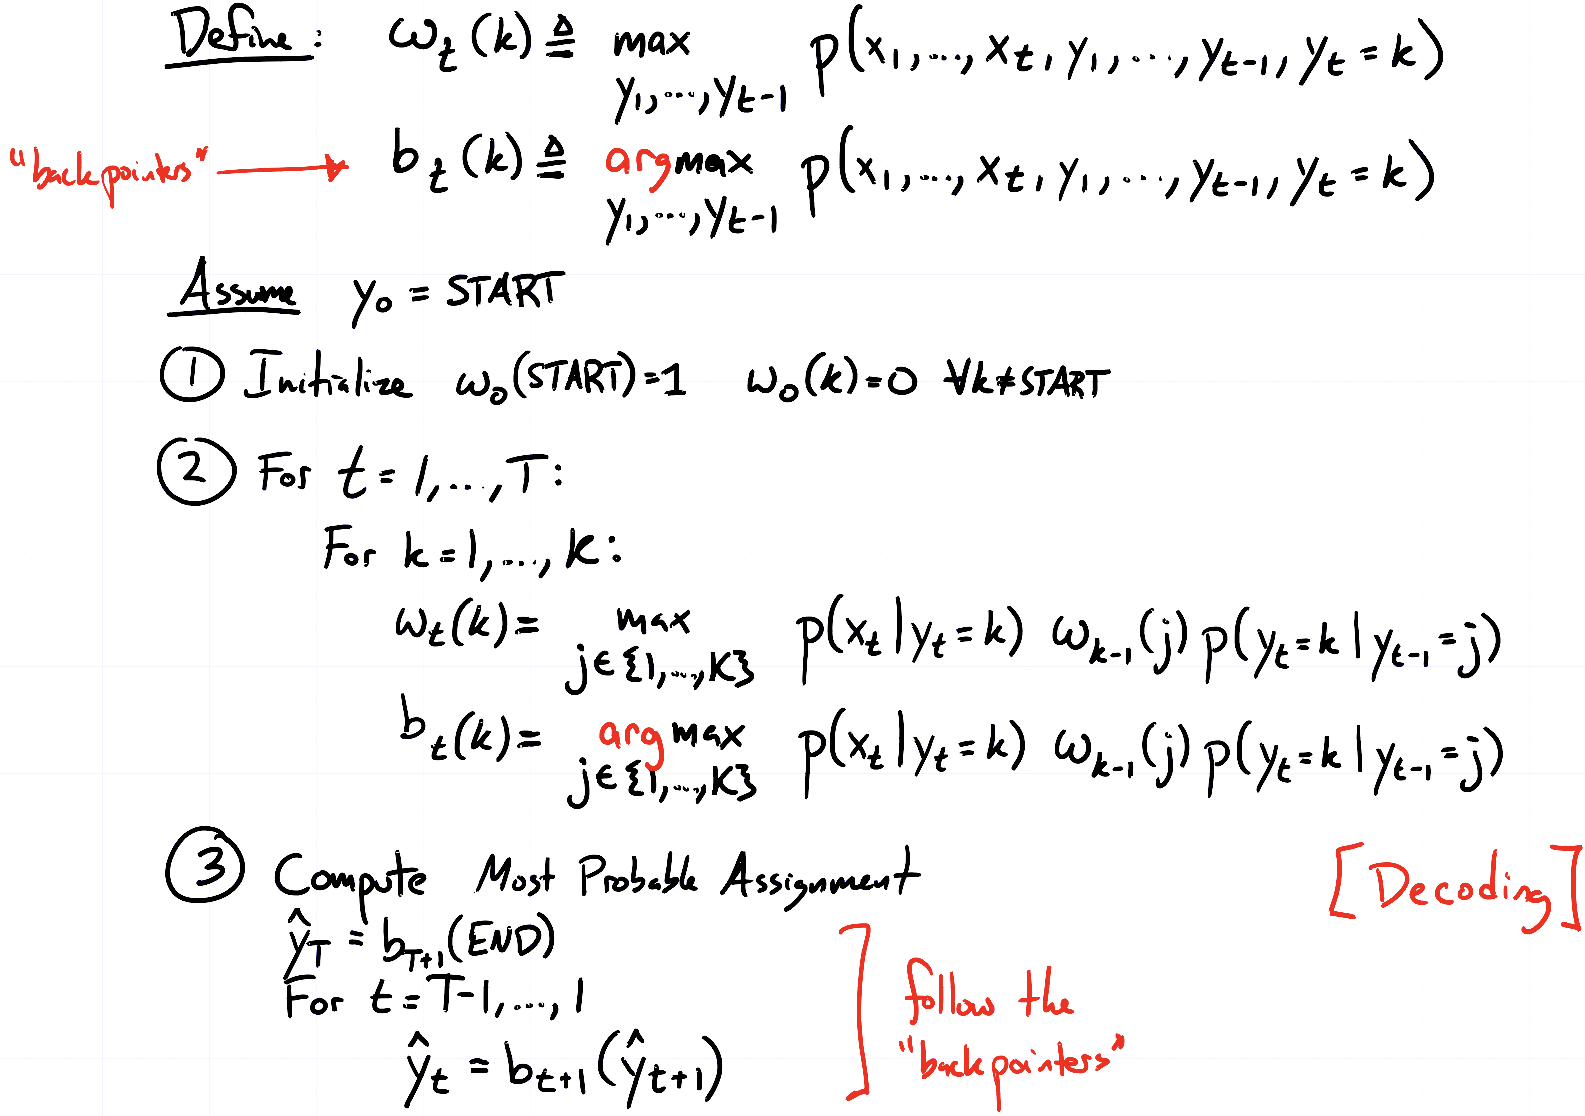 Define: ω_t(k) ≜ max p(x_1,...,x_t, y_1,...,y_{t-1}, y_t = k)
y_1,...,y_{t-1}
"backpointers" → b_t(k) ≜ argmax p(x_1,...,x_t, y_1,...,y_{t-1}, y_t = k)
y_1,...,y_{t-1}
Assume y_0 = START
① Initialize ω_0(START)=1 ω_0(k)=0 ∀k≠START
② For t = 1,...,T:
For k=1,...,K:
ω_t(k)= max p(x_t|y_t=k) ω_{k-1}(j) p(y_t=k|y_{t-1}=j)
j∈{1,...,K}
b_t(k)= argmax p(x_t|y_t=k) ω_{k-1}(j) p(y_t=k|y_{t-1}=j)
j∈{1,...,K}
③ Compute Most Probable Assignment [Decoding]
ŷ_T = b_{T+1}(END)
For t=T-1,...,1
ŷ_t = b_{t+1}(ŷ_{t+1})
] follow the
"backpointers"